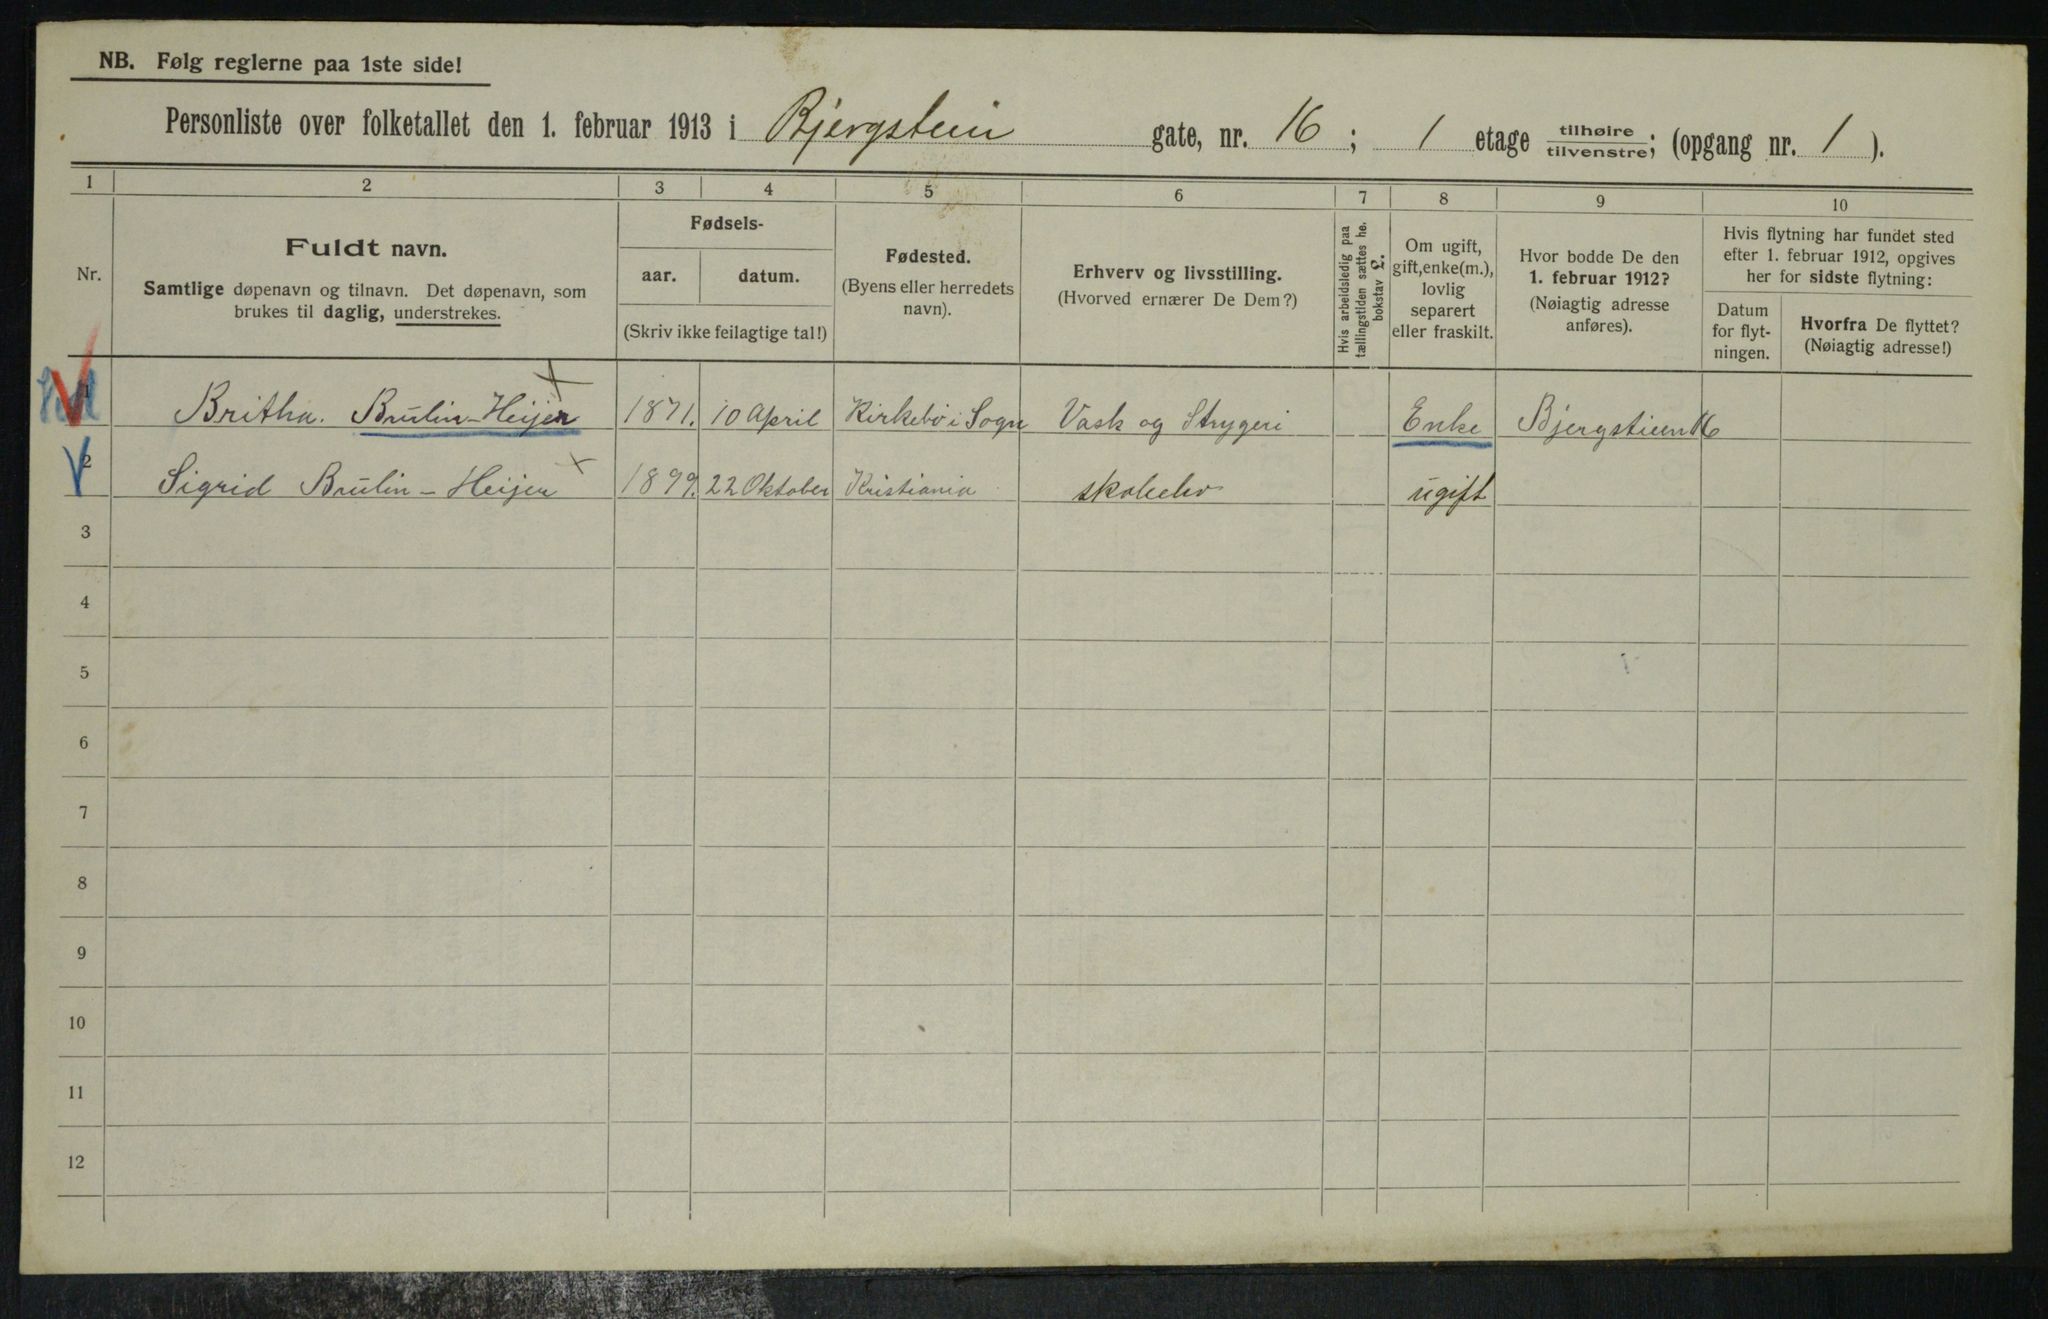 NB. Følg reglerne paa 1ste side!
Personliste over folketallet den 1. februar 1913 i Bjergstein gate, nr. 16 ; 1 etage tilhøire tilvenstre; (opgang nr. 1 ).
1 2 3 4 5 6 7 8 9 10
Nr.
Fuldt navn.
Samtlige døpenavn og tilnavn. Det døpenavn, som
brukes til daglig, understrekes.
Fødsels-
aar. datum.
(Skriv ikke feilagtige tal!)
Fødested.
(Byens eller herredets
navn).
Erhverv og livsstilling.
(Hvorved ernærer De Dem?)
Hvis arbeidsledig paa
tællingstiden sættes he.
bokstav L.
Om ugift,
gift, enke(m.),
lovlig
separert
eller fraskilt.
Hvor bodde De den
1. februar 1912?
(Nøiagtig adresse
anføres).
Hvis flytning har fundet sted
efter 1. februar 1912, opgives
her for sidste flytning:
Datum
for flyt-
ningen.
Hvorfra De flyttet?
(Nøiagtig adresse!)
1 Britha. Brulin-Heijer 1871. 10 April Kirkebø i Sogn Vask og Strygeri Enke Bjergstien 16
2 Sigrid Brulin-Heijer 1899. 22 Oktober Kristiania skoleelev ugift
3
4
5
6
7
8
9
10
11
12